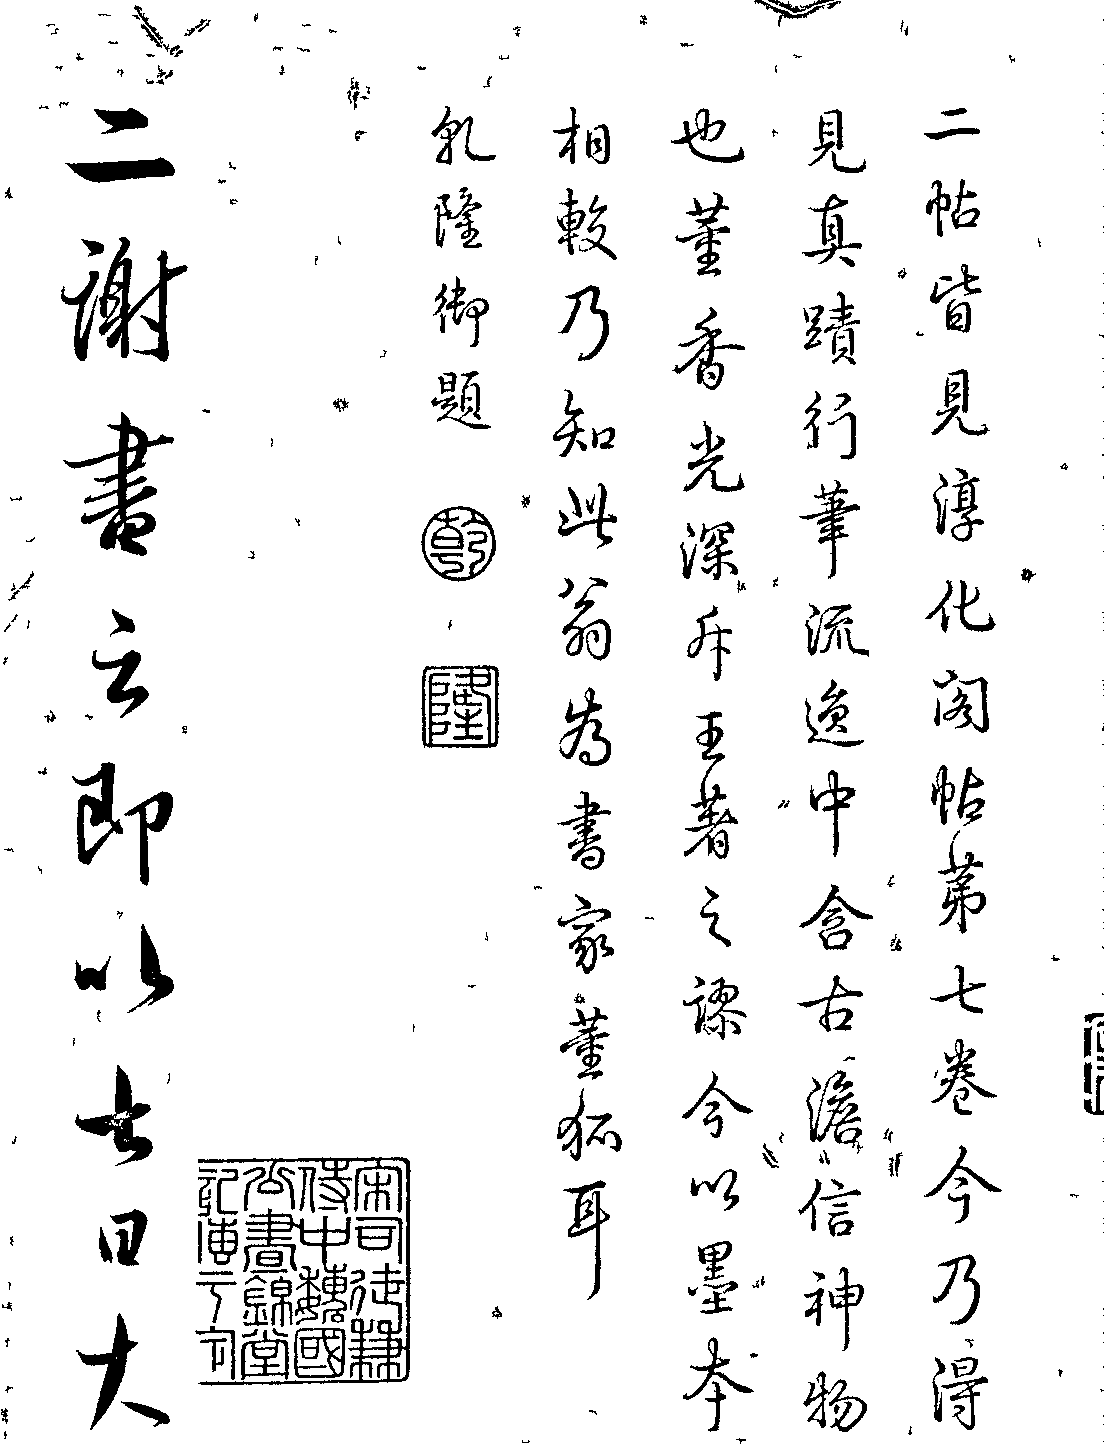 二帖皆見淳化閣帖苐七卷今乃淂
見真蹟行筆流逸中含古澹信神物
也董香光深斥王著之謬今以墨本
相較乃知此翁為書家董狐耳
乹隆御題
乾
隆
宋司徒兼
侍中魏國
公書錦堂
二謝書云即以七日大